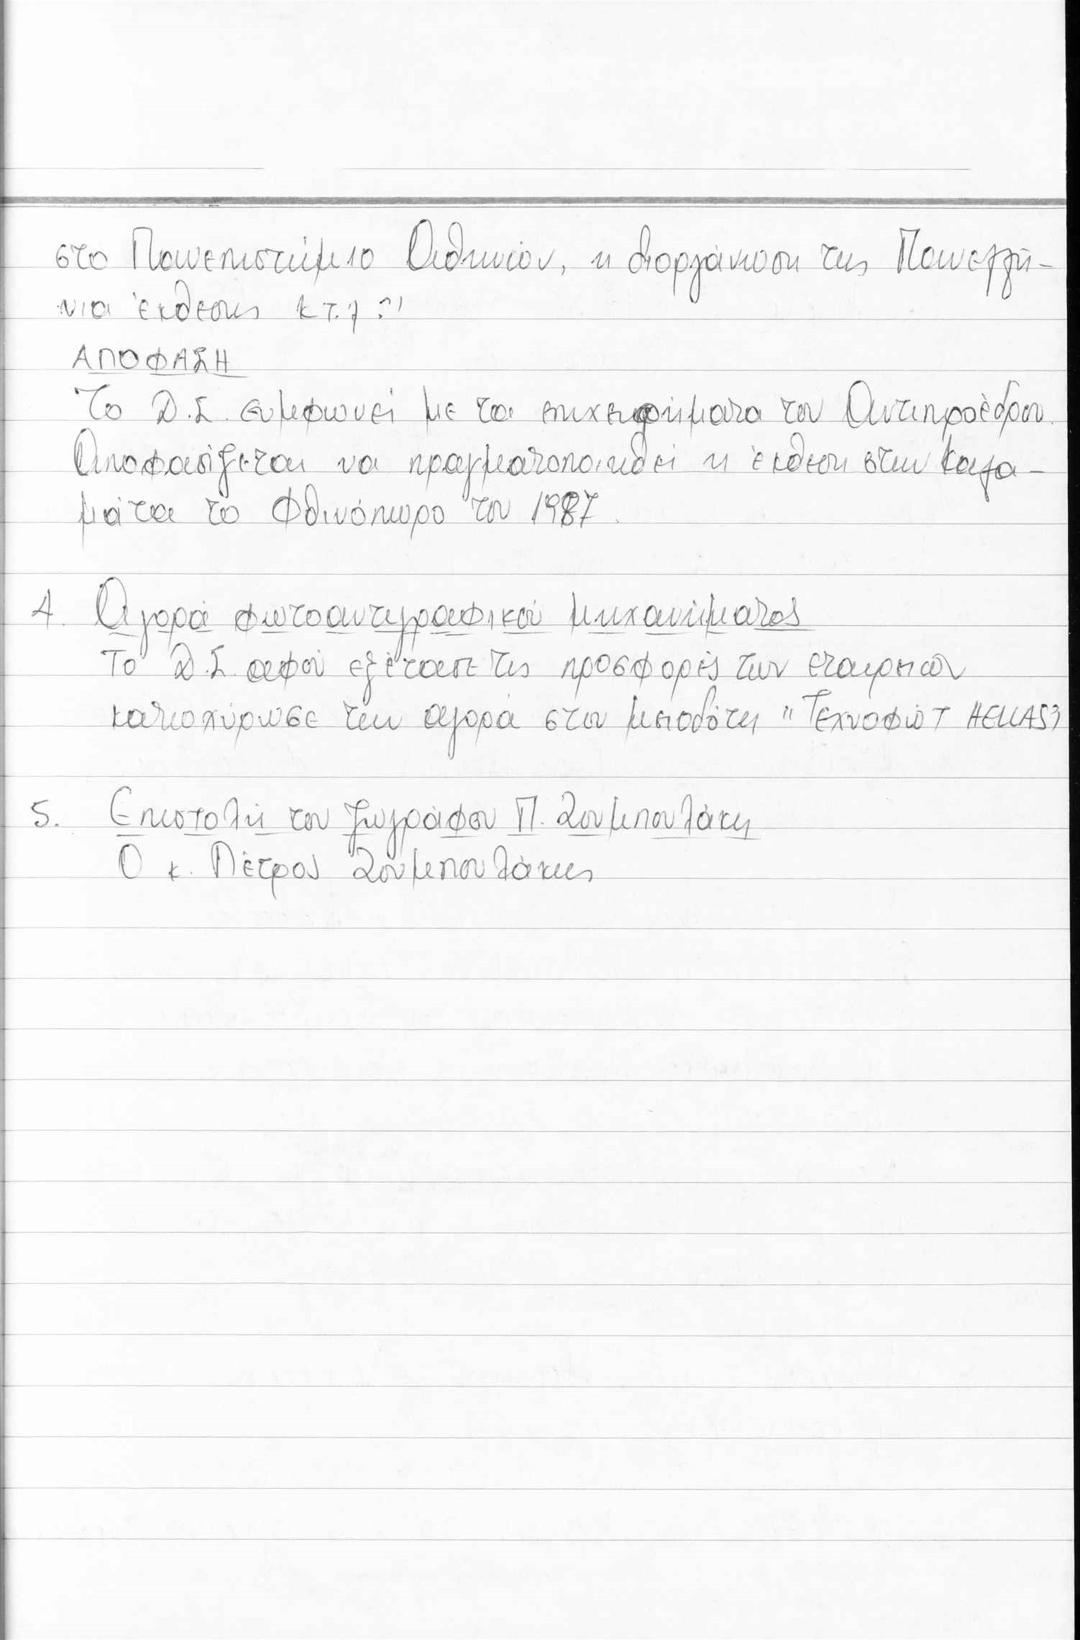 στο Πανεπιστήμιο Αθηνών, η διοργάνωση της Πανελλή-
νια έκθεσης κ.τ.λ."
ΑΠΟΦΑΣΗ
Το Δ.Σ. συμφωνεί με τα επιχειρήματα του Αντιπροέδρου.
Αποφασίζεται να πραγματοποιηθεί η έκθεση στην Καλα-
μάτα το Φθινόπωρο του 1987.
4. Αγορά φωτοαντιγραφικού μηχανήματος
Το Δ.Σ. αφού εξέτασε τις προσφορές των εταιρειών
κατοχύρωσε την αγορά στον μειοδότη "Τεχνοφώτ HELLAS"
5. Επιστολή του ζωγράφου Π. Ζουμπουλάκη
Ο κ. Πέτρος Ζουμπουλάκης